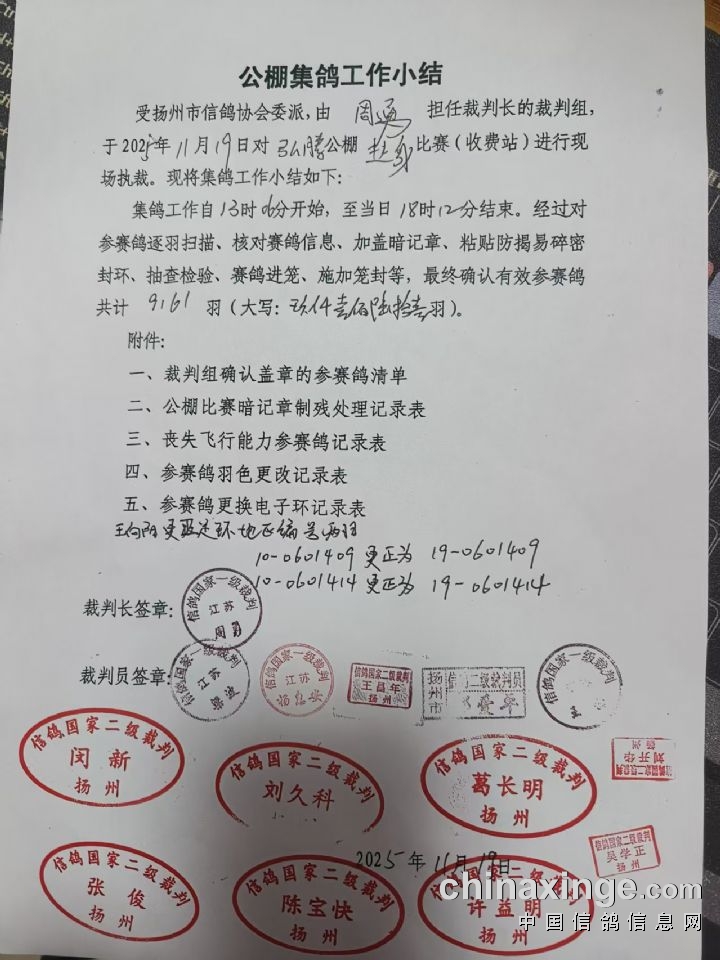 公棚集鸽工作小结
受扬州市信鸽协会委派,由 周勇 担任裁判长的裁判组,
于2025年11月19日对弘腾公棚 比赛(收费站)进行现
场执裁。现将集鸽工作小结如下:
集鸽工作自13时06分开始,至当日18时12分结束。经过对
参赛鸽逐羽扫描、核对赛鸽信息、加盖暗记章、粘贴防揭易碎密
封环、抽查检验、赛鸽进笼、施加笼封等,最终确认有效参赛鸽
共计 9161 羽(大写:玖仟壹佰陆拾壹羽)。
附件:
一、裁判组确认盖章的参赛鸽清单
二、公棚比赛暗记章制残处理记录表
三、丧失飞行能力参赛鸽记录表
四、参赛鸽羽色更改记录表
五、参赛鸽更换电子环记录表
王向阴更正足环地区编号两羽
10-0601409 更正为 19-0601409
10-0601414 更正为 19-0601414
裁判长签章:
信鸽国家一级裁判
江苏
周勇
裁判员签章:
信鸽国家一级裁判
江苏
信鸽国家一级裁判
江苏
信鸽国家二级裁判
王昌年
扬州
扬州市
信鸽二级裁判员
信鸽国家一级裁判
信鸽国家二级裁判
闵新
扬州
信鸽国家二级裁判
刘久科
信鸽国家二级裁判
葛长明
扬州
信鸽国家二级裁判
刘开华
扬州
2025年11月19日
信鸽国家二级裁判
吴学正
扬州
信鸽国家二级裁判
张俊
扬州
信鸽国家二级裁判
陈宝快
扬州
信鸽国家二级裁判
许益明
扬州
chinaxinge.com
中国信鸽信息网